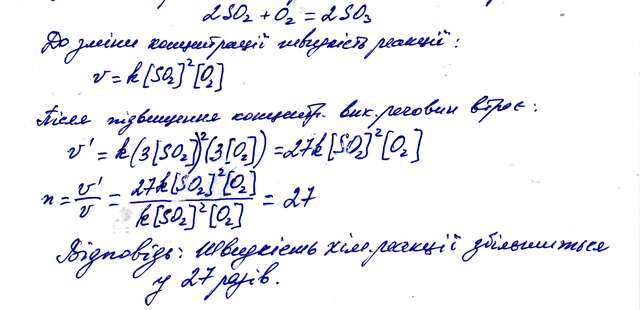 2SO₂ + O₂ = 2SO₃
До зміни концентрації швидкість реакції:
v = k[SO₂]²[O₂]
Після підвищення концентр. вих. речовин втроє:
v' = k(3[SO₂])²(3[O₂]) = 27k[SO₂]²[O₂]
n = v'/v = 27k[SO₂]²[O₂]/k[SO₂]²[O₂] = 27
Відповідь: Швидкість хім. реакції збільшиться
у 27 разів.